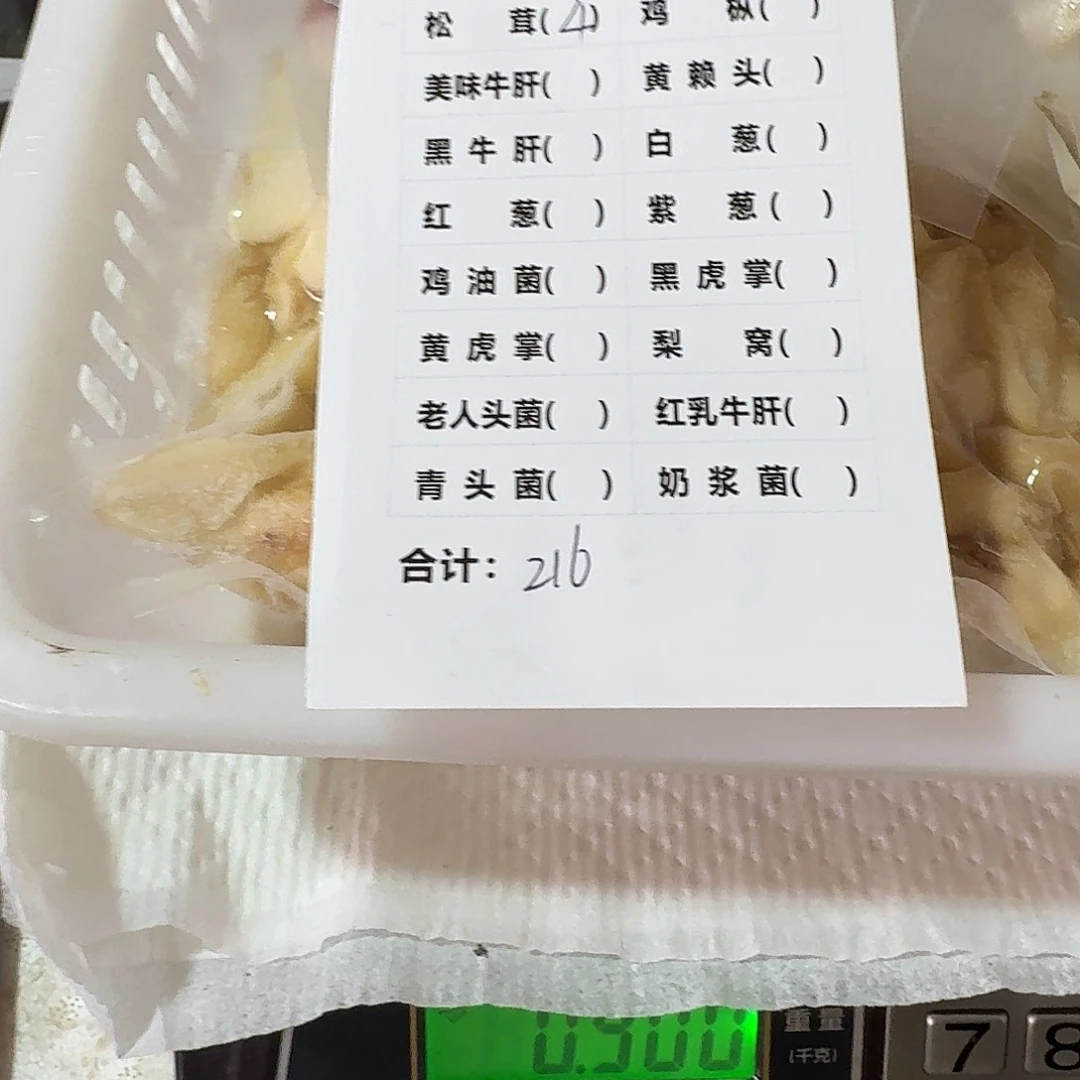 松 茸(4) 鸡 枞( )
美味牛肝( ) 黄 赖 头( )
黑 牛 肝( ) 白 葱( )
红 葱( ) 紫 葱( )
鸡 油 菌( ) 黑 虎 掌( )
黄 虎 掌( ) 梨 窝( )
老人头菌( ) 红乳牛肝( )
青 头 菌( ) 奶 浆 菌( )
合计：216
0.900 重量
(千克)
7 8